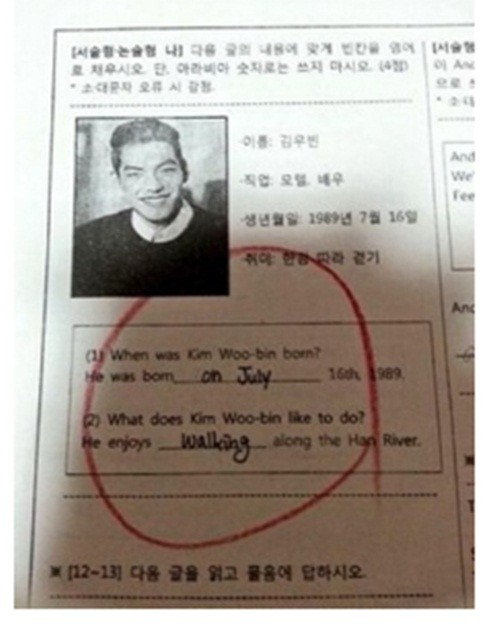 [서술형·논술형 나] 다음 글의 내용에 맞게 빈칸을 영어
로 채우시오. 단, 아라비아 숫자로는 쓰지 마시오. (4점)
* 소·대문자 오류 시 감점.
·이름: 김우빈
·직업: 모델, 배우
·생년월일: 1989년 7월 16일
·취미: 한강 따라 걷기
(1) When was Kim Woo-bin born?
He was born on July 16th, 1989.
(2) What does Kim Woo-bin like to do?
He enjoys walking along the Han River.
※ [12~13] 다음 글을 읽고 물음에 답하시오.
[서술형
이 And
으로
And
We'
Fee
And